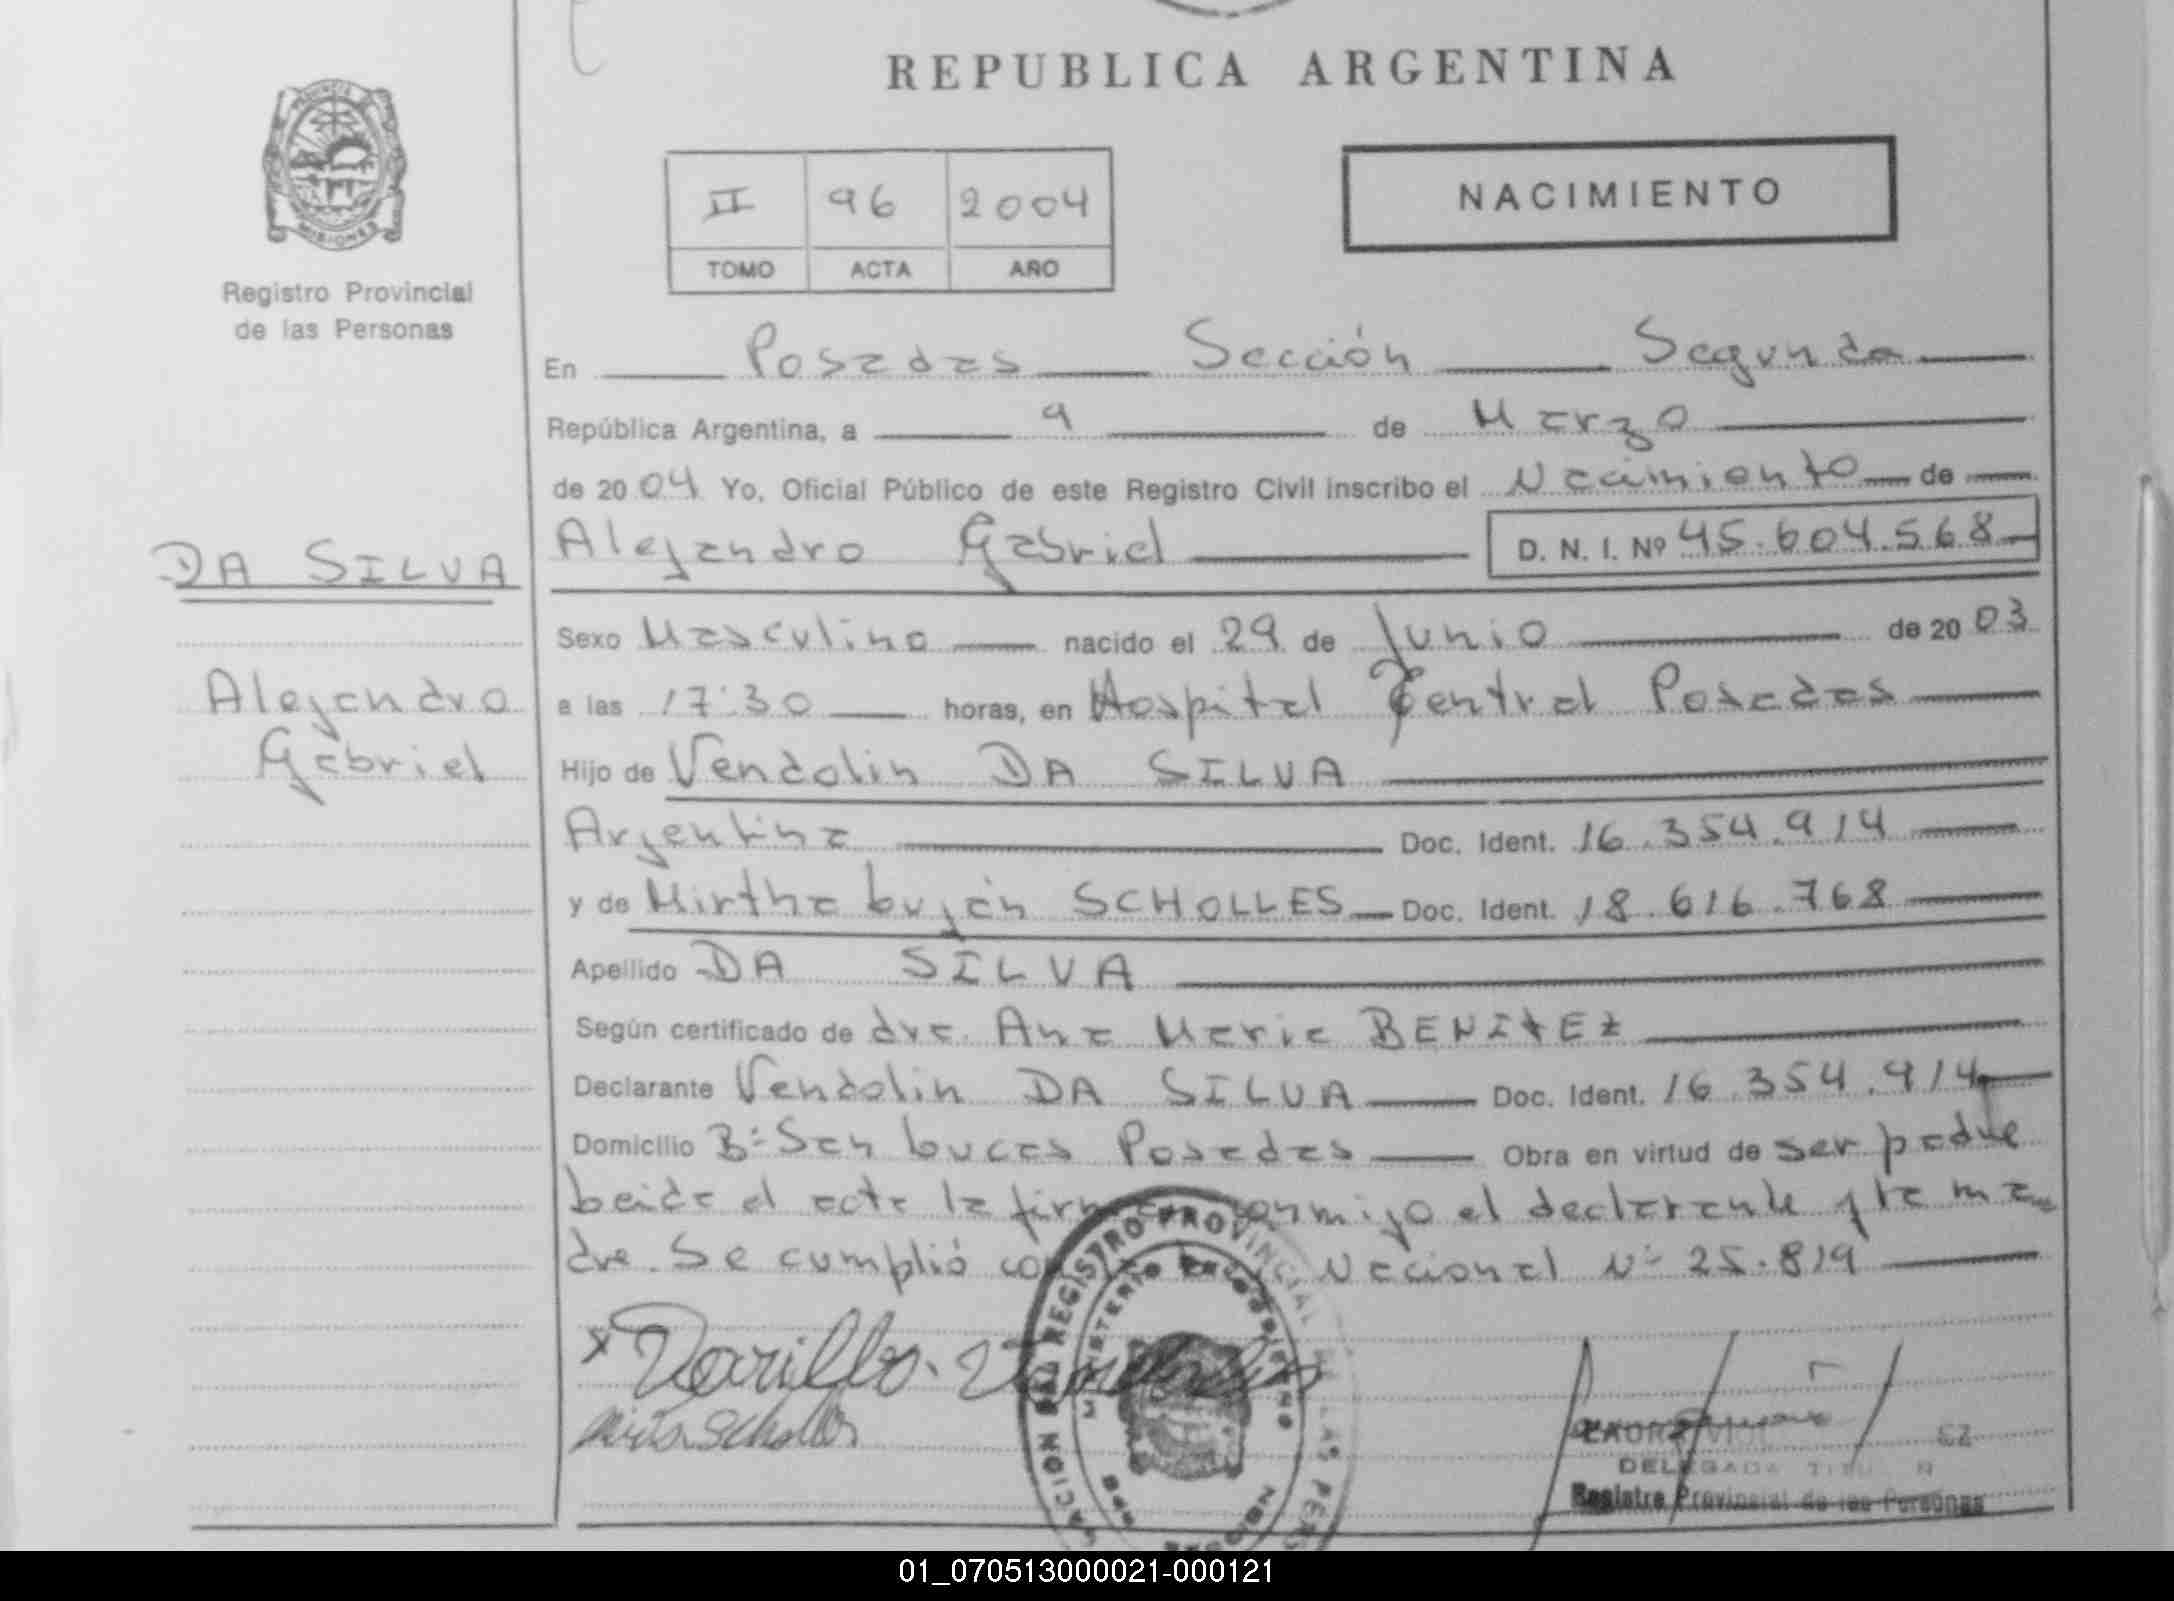 REPUBLICA ARGENTINA
PROVINCIA
MISIONES
Registro Provincial
de las Personas
II 96 2004
TOMO ACTA AÑO
NACIMIENTO
En Posadas Sección Segunda
República Argentina, a 9 de Marzo
de 2004 Yo, Oficial Público de este Registro Civil inscribo el Nacimiento de
DA SILVA
Alejandro Gabriel D. N. I. Nº 45.604.568
Sexo Masculino nacido el 29 de Junio de 2003
Alejandro
Gabriel
a las 17:30 horas, en Hospital Central Posadas
Hijo de Vendolin DA SILVA
Argentina Doc. Ident. 16.354.914
y de Mirtha Luján SCHOLLES Doc. Ident. 18.616.768
Apellido DA SILVA
Según certificado de dra. Ana Maria BENITEZ
Declarante Vendolin DA SILVA Doc. Ident. 16.354.914
Domicilio Bº San Lucas Posadas Obra en virtud de ser padre
Leida el acta la firman conmigo el declarante y la ma
dre. Se cumplió con Nacional Nº 25.819
REGISTRO PROVINCIAL DE LAS
MINISTERIO DE GOBIERNO
MISIONES
DELEGADA
Registro Provincial de las Personas
01_070513000021-000121